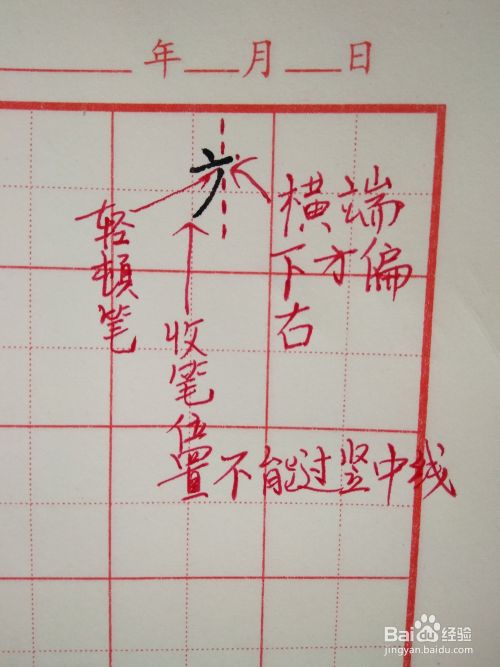 年 月 日
轻顿笔
横端
下方偏
右
收笔位置不能过竖中线
Baidu经验
jingyan.baidu.com